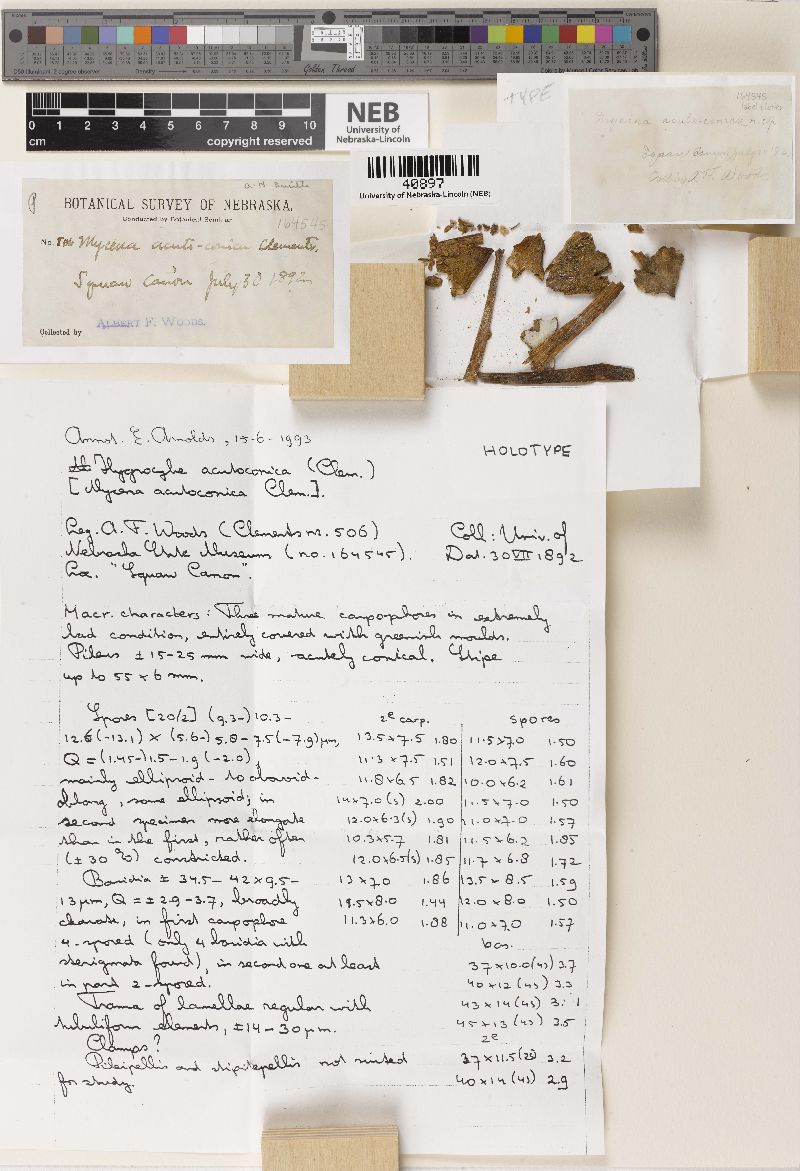 Golden Thread
0 1 2 3 4 5 6 7 8 9 10
cm copyright reserved
NEB
University of
Nebraska-Lincoln
40897
University of Nebraska-Lincoln (NEB)
TYPE
164545
Mycena acuto-conica n. sp.
Squaw Canyon July 30 '92
A. H. Smith
BOTANICAL SURVEY OF NEBRASKA.
Conducted by Botanical Seminar
164545
No. 506 Mycena acuti-conica Clements.
Squaw Cañon July 30 1892
Collected by ALBERT F. WOODS.
Annot. E. Arnolds, 15-6-1993
HOLOTYPE
Hygrocybe acutoconica (Clem.)
[Mycena acutoconica Clem.].
Leg. A. F. Woods (Clements nr. 506) Coll: Univ. of
Nebraska State Museum (no. 164545). Dat. 30 VII 1892
Loc. "Squaw Canon".
Macr. characters: Three mature carpophores in extremely
bad condition, entirely covered with greenish moulds.
Pileus ± 15-25 mm wide, acutely conical. Stipe
up to 55 x 6 mm.
Spores [20/2] (9.3-) 10.3-
12.6 (-13.1) x (5.6-) 5.8-7.5 (-7.9) µm,
Q = (1.45-) 1.5-1.9 (-2.0),
mainly ellipsoid- to obovoid-
oblong, some ellipsoid; in
second specimen more elongate
than in the first, rather often
(± 30 %) constricted.
Basidia ± 34.5-42 x 9.5-
13 µm, Q = ± 2.9-3.7, broadly
clavate, in first carpophore
4-spored (only 4 basidia with
sterigmata found), in second one at least
in part 2-spored.
Trama of lamellae regular with
tubuliform elements, ± 14-30 µm.
Clamps?
Pileipellis and stipitipellis not suited
for study.
2e carp.
13.5 x 7.5 1.80
11.3 x 7.5 1.51
11.8 x 6.5 1.82
14 x 7.0 (s) 2.00
12.0 x 6.3 (s) 1.90
10.3 x 5.7 1.81
12.0 x 6.5 (s) 1.85
13 x 7.0 1.86
11.3 x 6.0 1.88
spores
11.5 x 7.0 1.50
12.0 x 7.5 1.60
10.0 x 6.2 1.61
11.5 x 7.0 1.50
11.0 x 7.0 1.57
11.5 x 6.2 1.85
11.7 x 6.8 1.72
13.5 x 8.5 1.59
12.0 x 8.0 1.50
11.0 x 7.0 1.57
bas.
37 x 10.0 (4s) 3.7
40 x 12 (4s) 3.3
43 x 14 (4s) 3.1
45 x 13 (4s) 3.5
2e
37 x 11.5 (2s) 3.2
40 x 14 (4s) 2.9